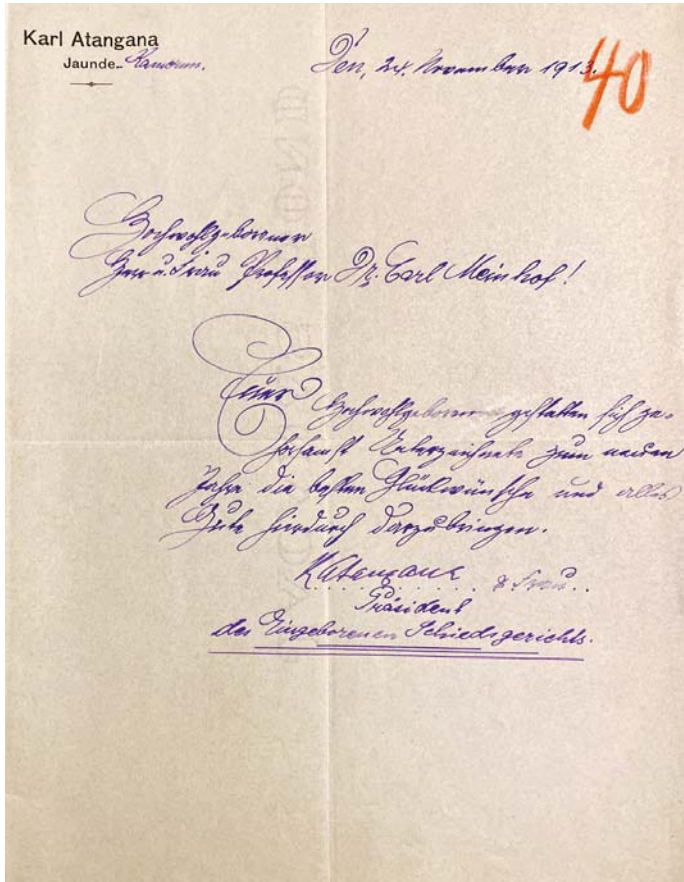 Karl Atangana
Jaunde. Kamerun.
Den, 24. November 1913.
40
Hochwohlgeborener
Herr u. Frau Professor Dr. Carl Meinhof!
Euer Hochwohlgeborene gestatten sich ge-
horsamst Unterzeichnete zum neuen
Jahre die besten Glückwünsche und alles
Gute hierdurch darzubringen.
KAtangana & Frau.
Präsident
des Eingeborenen Schiedsgerichts.